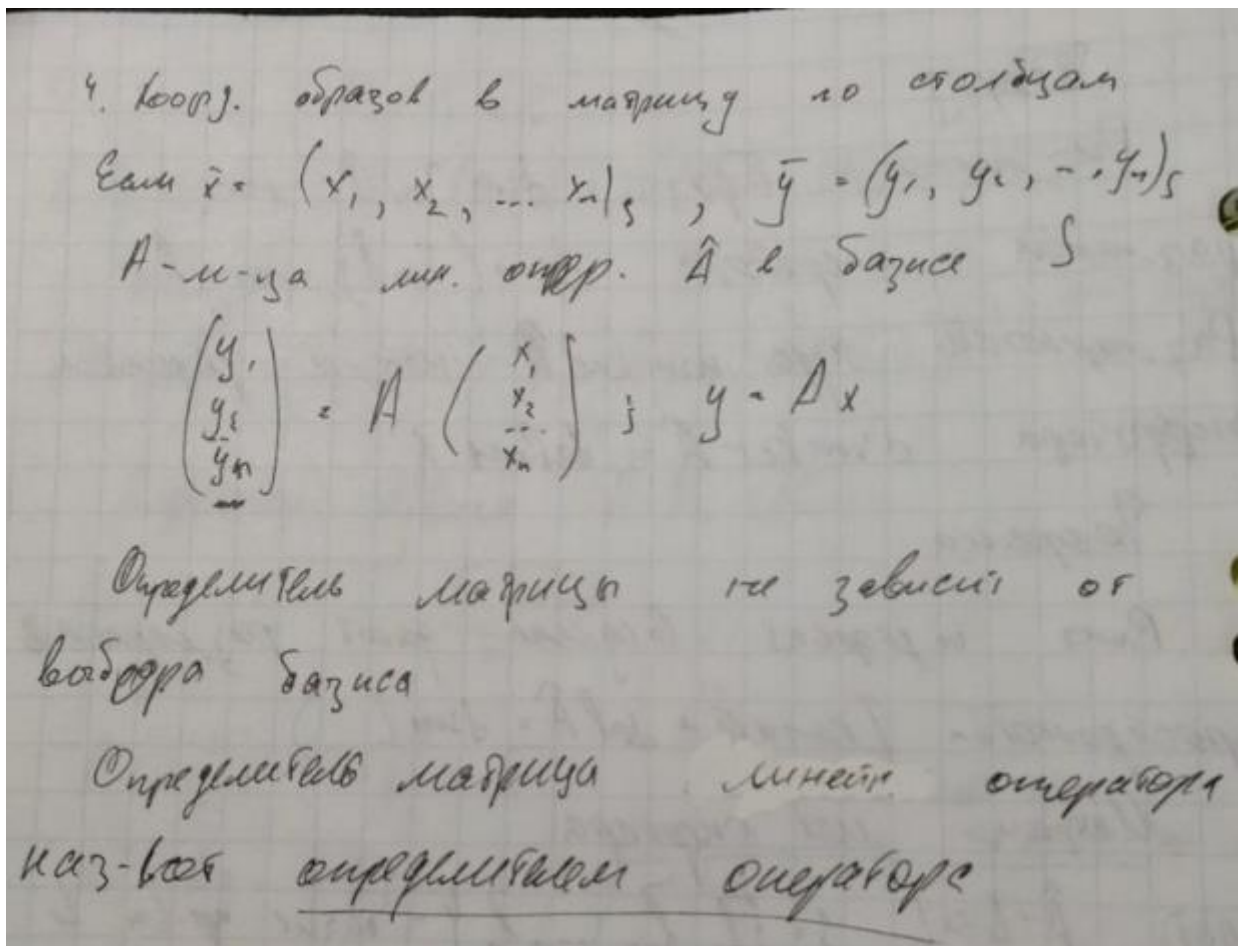 4. Коорд. образов в матрицу по столбцам
Если x̄ = (x₁, x₂, ... xₙ)ₛ , ȳ = (y₁, y₂, ..., yₙ)ₛ
A - м-ца лин. опер. Â в базисе S
(y₁ y₂ ... yₙ) = A (x₁ x₂ ... xₙ) ; y = Ax
Определитель матрицы не зависит от
выбора базиса
Определитель матрица линейн оператора
наз-вают определителем оператора